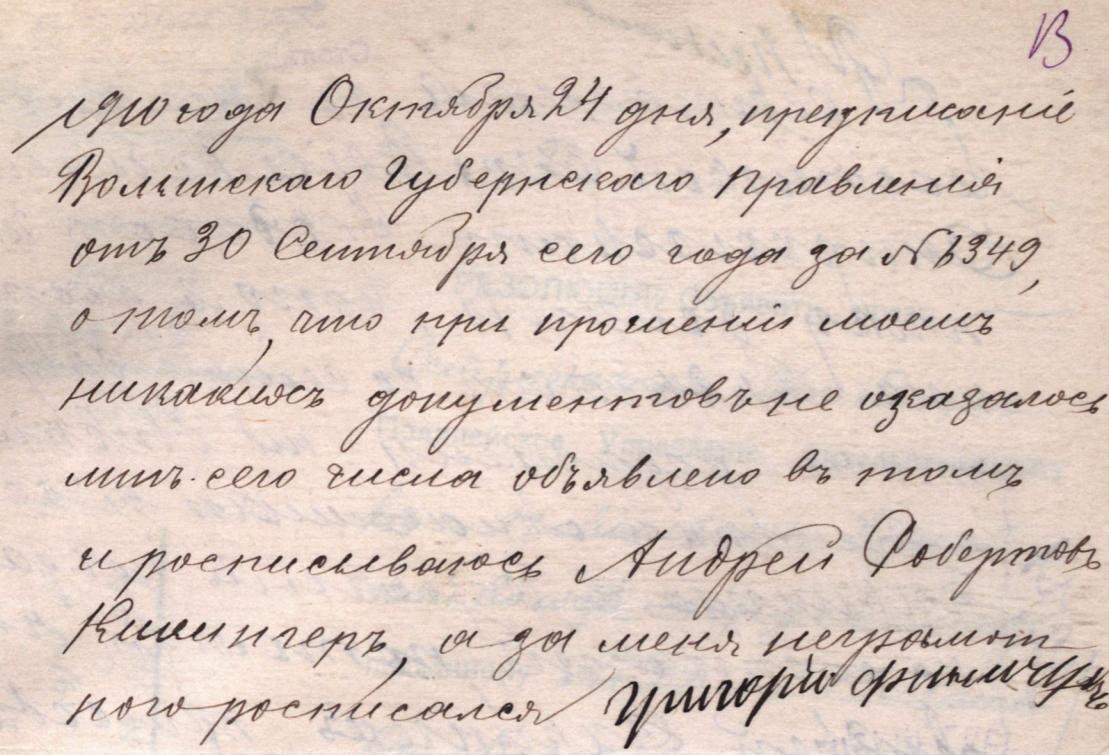 13
1910 года Октября 24 дня, предписаніе
Волынскаго Губернскаго Правленія
отъ 30 Сентября сего года за № 1349,
о томъ, что при прошеніи моемъ
никакихъ документовъ не оказалось
мнѣ сего числа объявлено въ томъ
и росписываюсь Андрей Робертовъ
а за меня неграмот
ного росписался Григорій